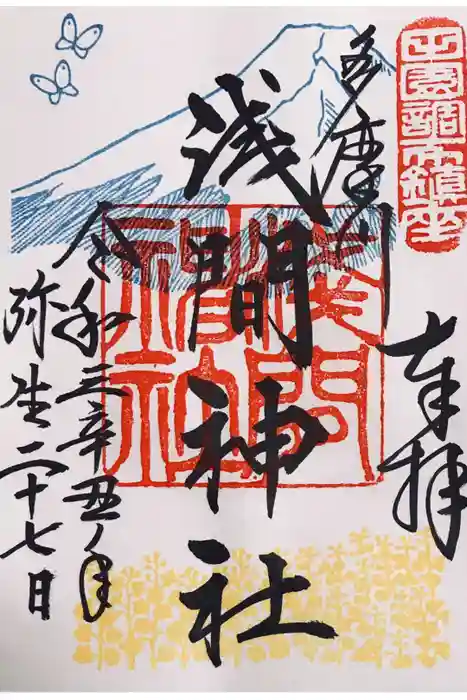 田園調布鎮座
奉拝
多摩川
浅間神社
淺間
神社
令和三辛丑ノ年
弥生二十七日